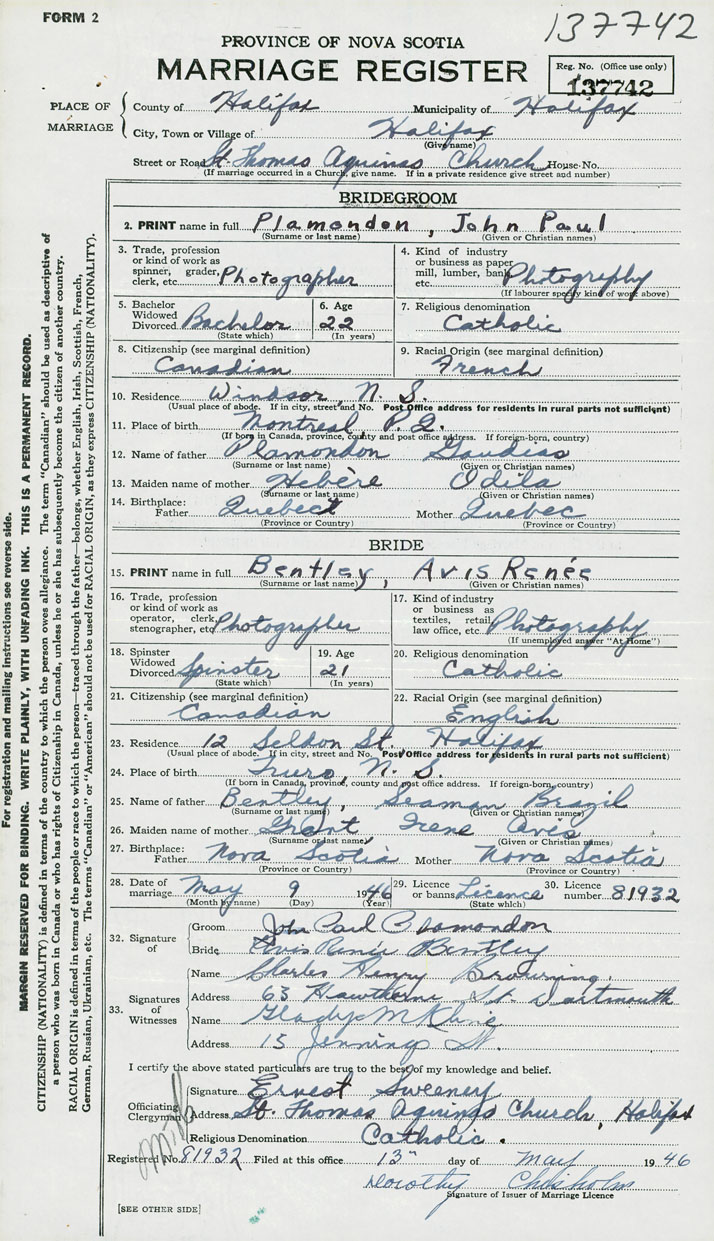 FORM 2
137742
PROVINCE OF NOVA SCOTIA
MARRIAGE REGISTER
Reg. No. (Office use only)
137742
PLACE OF MARRIAGE
County of Halifax Municipality of Halifax
City, Town or Village of Halifax
(Give name)
Street or Road St. Thomas Aquinas Church House No.
(If marriage occurred in a Church, give name. If in a private residence give street and number)
BRIDEGROOM
2. PRINT name in full Plamondon, John Paul
(Surname or last name) (Given or Christian names)
3. Trade, profession or kind of work as spinner, grader, clerk, etc. Photographer
4. Kind of industry or business as paper mill, lumber, bank etc. Photography
(If labourer specify kind of work above)
5. Bachelor Widowed Divorced Bachelor
(State which)
6. Age 22
(In years)
7. Religious denomination Catholic
8. Citizenship (see marginal definition) Canadian
9. Racial Origin (see marginal definition) French
10. Residence Windsor, N. S.
(Usual place of abode. If in city, street and No. Post Office address for residents in rural parts not sufficient)
11. Place of birth Montreal, P. Q.
(If born in Canada, province, county and post office address. If foreign-born, country)
12. Name of father Plamondon Gaudias
(Surname or last name) (Given or Christian names)
13. Maiden name of mother Hebère Odila
(Surname or last name) (Given or Christian names)
14. Birthplace: Father Quebect Mother Quebec
(Province or Country) (Province or Country)
BRIDE
15. PRINT name in full Bentley, Avis Renée
(Surname or last name) (Given or Christian names)
16. Trade, profession or kind of work as operator, clerk, stenographer, etc. Photographer
17. Kind of industry or business as textiles, retail law office, etc. Photography
(If unemployed answer "At Home")
18. Spinster Widowed Divorced Spinster
(State which)
19. Age 21
(In years)
20. Religious denomination Catholic
21. Citizenship (see marginal definition) Canadian
22. Racial Origin (see marginal definition) English
23. Residence 12 Seldon St. Halifax
(Usual place of abode. If in city, street and No. Post Office address for residents in rural parts not sufficient)
24. Place of birth Truro, N. S.
(If born in Canada, province, county and post office address. If foreign-born, country)
25. Name of father Bentley, Seaman Brazil
(Surname or last name) (Given or Christian names)
26. Maiden name of mother Grant Irene Aves
(Surname or last name) (Given or Christian names)
27. Birthplace: Father Nova Scotia Mother Nova Scotia
(Province or Country) (Province or Country)
28. Date of marriage May 9 1946
(Month by name) (Day) (Year)
29. Licence or banns Licence
(State which)
30. Licence number 81932
32. Signature of
Groom John Paul Plamondon
Bride Avis Renée Bentley
33. Signatures of Witnesses
Name Charles Henry Browning.
Address 63 Hawthorne St. Dartmouth
Name Gladys
Address 15 Jennings St.
I certify the above stated particulars are true to the best of my knowledge and belief.
Officiating Clergyman
Signature Ernest Sweeney
Address St. Thomas Aquinas Church, Halifax
Religious Denomination Catholic.
Registered No. 81932 Filed at this office 13th day of May 1946
Dorothy Chisholm
Signature of Issuer of Marriage Licence
[SEE OTHER SIDE]
For registration and mailing instructions see reverse side.
MARGIN RESERVED FOR BINDING. WRITE PLAINLY, WITH UNFADING INK. THIS IS A PERMANENT RECORD.
CITIZENSHIP (NATIONALITY) is defined in terms of the country to which the person owes allegiance. The term "Canadian" should be used as descriptive of
a person who was born in Canada or who has rights of Citizenship in Canada, unless he or she has subsequently become the citizen of another country.
RACIAL ORIGIN is defined in terms of the people or race to which the person—traced through the father—belongs, whether English, Irish, Scottish, French,
German, Russian, Ukrainian, etc. The terms "Canadian" or "American" should not be used for RACIAL ORIGIN, as they express CITIZENSHIP (NATIONALITY).